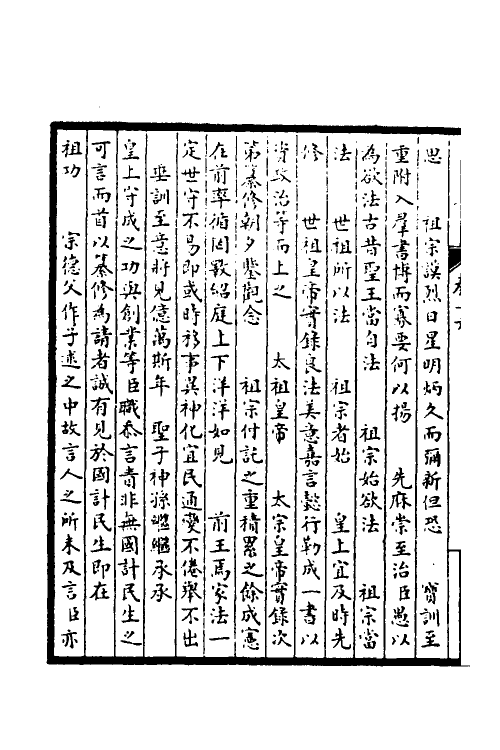 思　祖宗謨烈日星明炳久而彌新但恐　寶訓至
重附入羣書博而寡要何以揚　先麻崇至治臣愚以
為欲法古昔聖王當自法　祖宗始欲法　祖宗當
法　世祖所以法　祖宗者始　皇上宜及時先
修　世祖皇帝實錄良法美意嘉言懿行勒成一書以
資政治等而上之　太祖皇帝　太宗皇帝實錄次
第纂修朝夕鑒觀念　祖宗付託之重積累之餘成憲
在前率循罔斁紹庭上下洋洋如見　前王焉家法一
定世守不易即或時移事異神化宜民通變不倦舉不出
垂訓至意將見億萬斯年　聖子神孫繼繼承承
皇上守成之功與創業等臣職忝言責非無國計民生之
可言而首以纂修為請者誠有見於國計民生即在
祖功　宗德父作子述之中故言人之所未及言臣亦